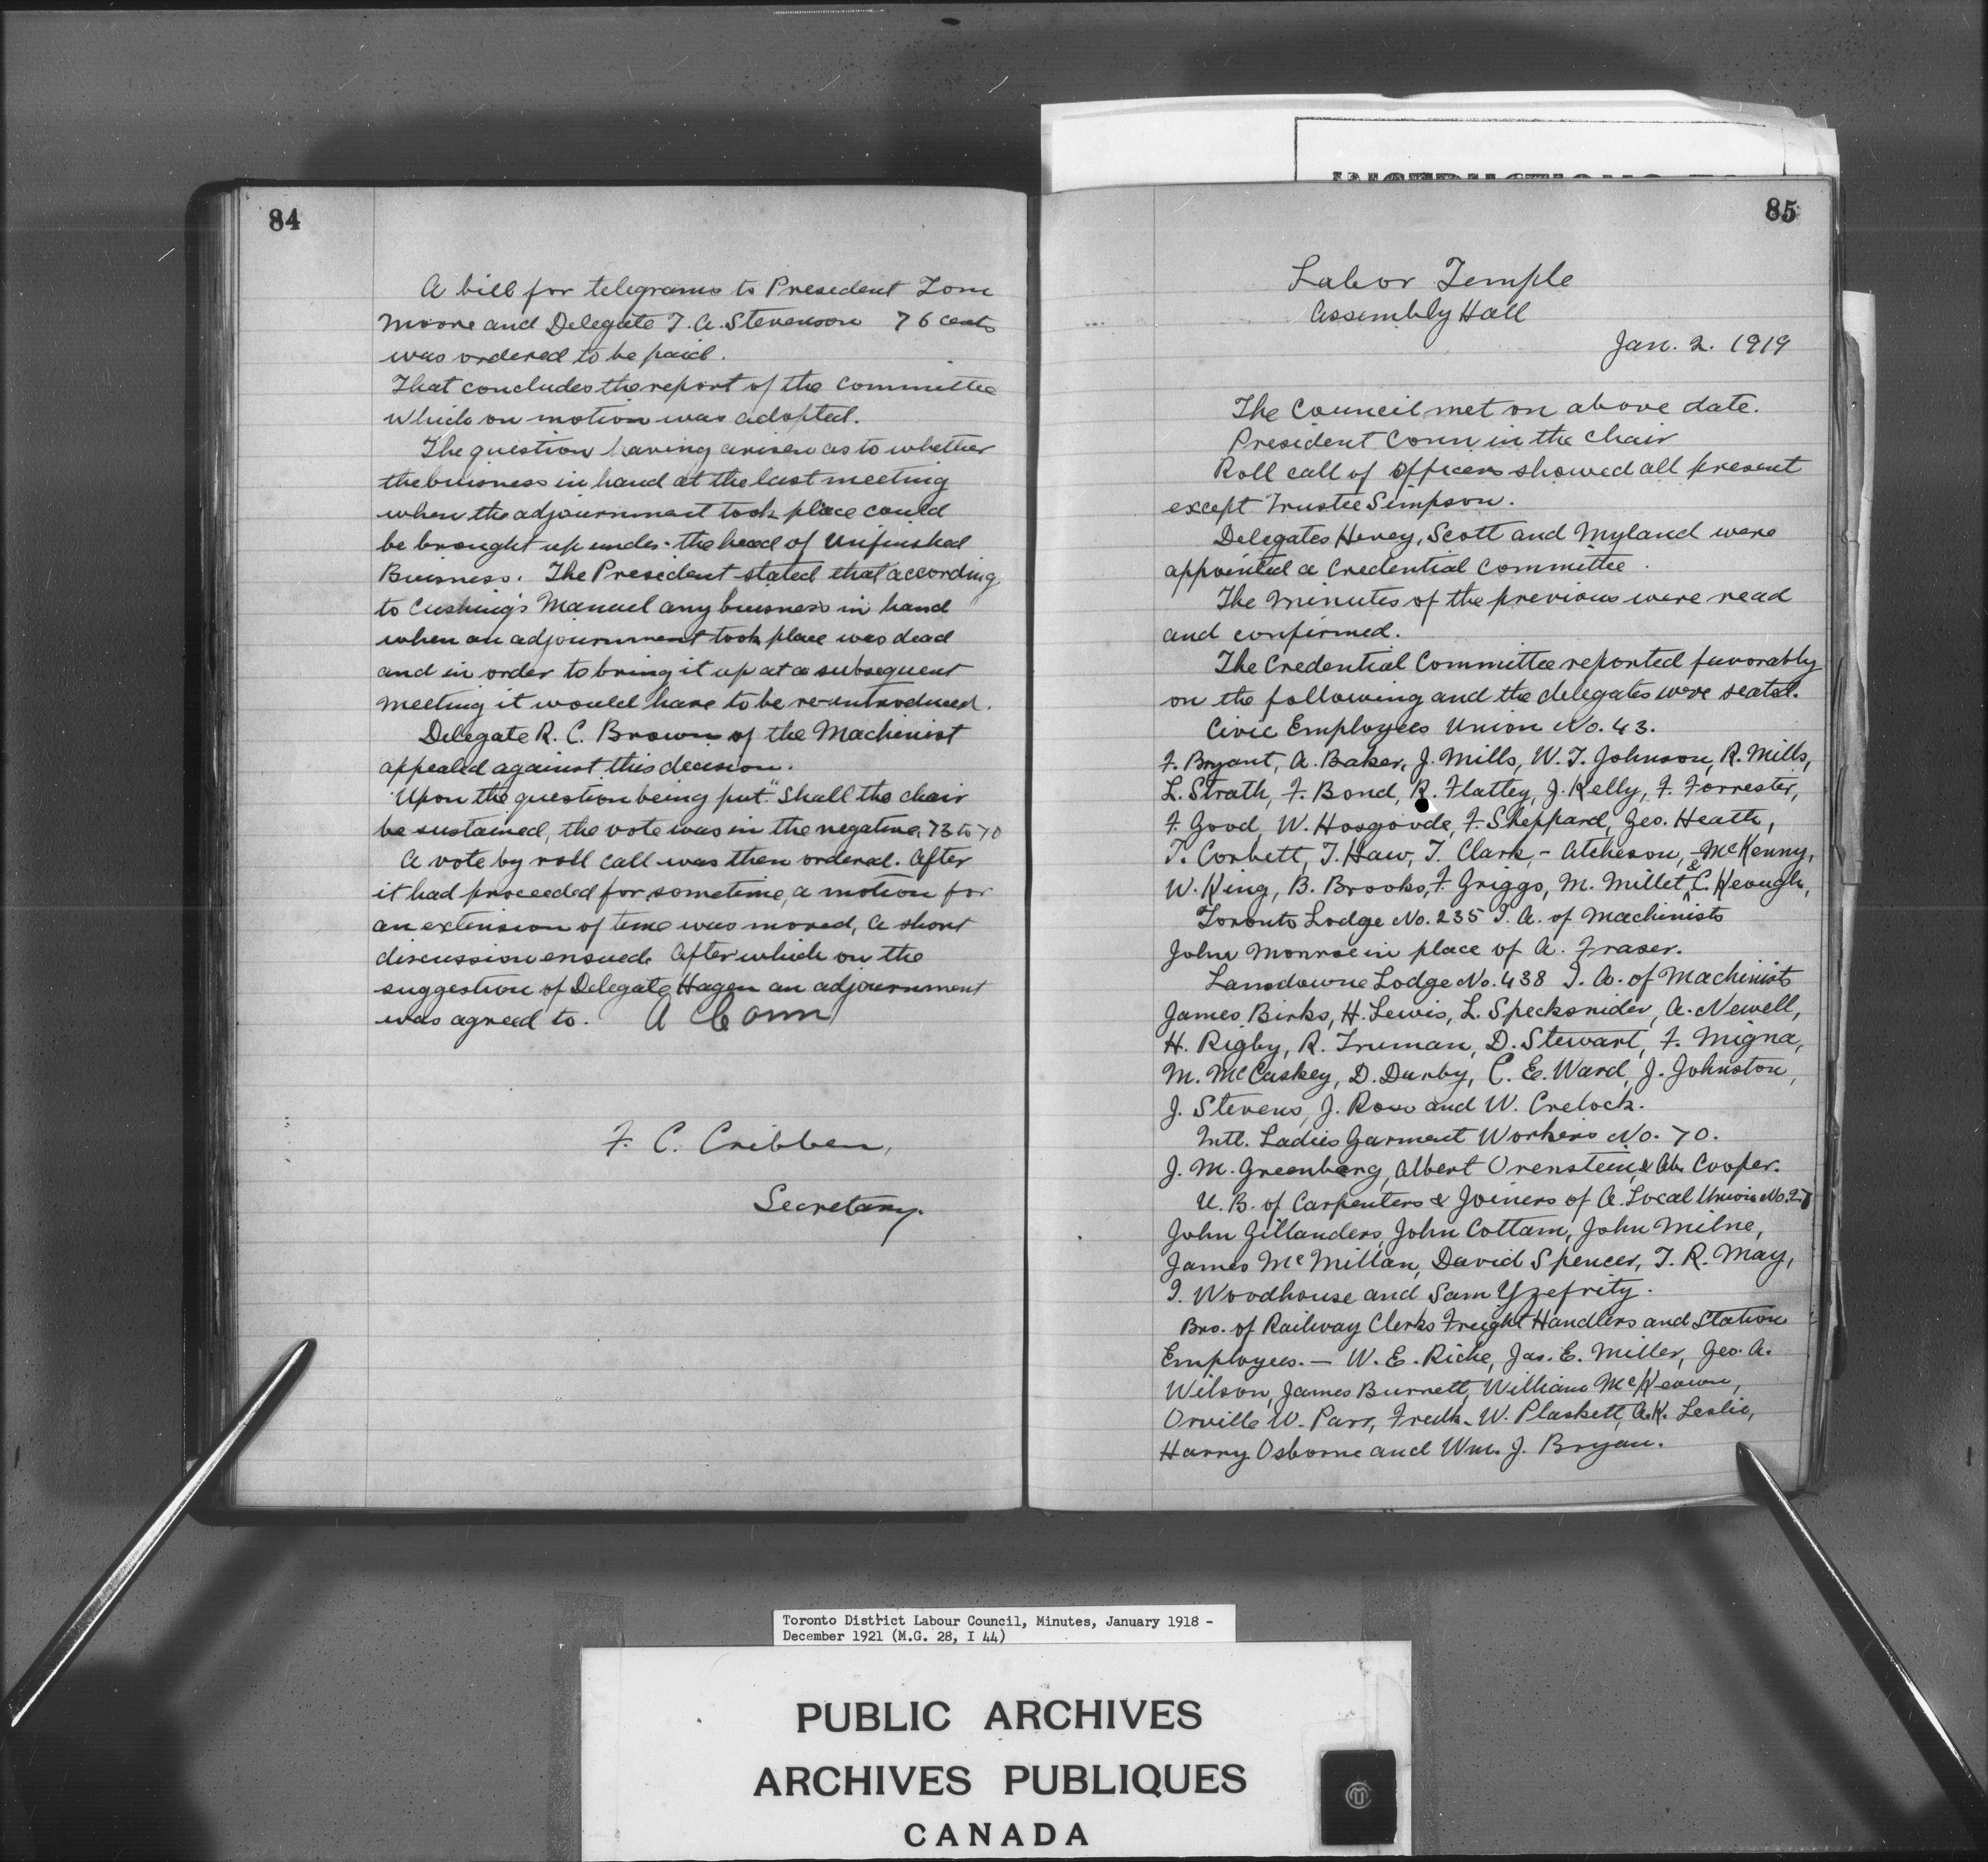 84
A bill for telegrams to President Tom
Moore and Delegate T. A. Stevenson 76 cents
was ordered to be paid.
That concludes the report of the committee
which on motion was adopted.
The question having arisen as to whether
the buisness in hand at the last meeting
when the adjournment took place could
be brought up under the head of Unfinished
Buisness. The President stated that according
to Cushing's Manuel any buisness in hand
when an adjournment took place was dead
and in order to bring it up at a subsequent
meeting it would have to be re-introduced.
Delegate R. C. Brown of the Machinist
appealed against this decision.
Upon the question being put "Shall the chair
be sustained, the vote was in the negative, 73 to 70
A vote by roll call was then ordered. After
it had proceeded for sometime, a motion for
an extension of time was moved, a short
discussion ensued. After which on the
suggestion of Delegate Hagen an adjournment
was agreed to. A Conn
F. C. Cribben,
Secretary.
85
Labor Temple
Assembly Hall
Jan. 2. 1919
The Council met on above date.
President Conn in the chair
Roll call of officers showed all present
except Trustee Simpson.
Delegates Hevey, Scott and Myland were
appointed a Credential Committee.
The minutes of the previous were read
and confirmed.
The Credential Committee reported favorably
on the following and the delegates were seated.
Civic Employees Union No. 43.
F. Bryant, A. Baker, J. Mills, W. T. Johnson, R. Mills,
L. Strath, F. Bond, R. Flattey, J. Kelly, F. Forrester,
F. Good, W. Hosgoode, F. Sheppard, Geo. Heath,
T. Corbett, T. Haw, T. Clark, - Atcheson, - McKenny,
W. King, B. Brooks, F. Griggs, M. Millet & C. Keough,
Toronto Lodge No. 235 I. A. of Machinists
John Monroe in place of A. Fraser.
Lansdowne Lodge No. 438 I. A. of Machinists
James Birks, H. Lewis, L. Specksnider, A. Newell,
H. Rigby, R. Truman, D. Stewart, F. Migna,
M. McCaskey, D. Darby, C. E. Ward, J. Johnston,
J. Stevens, J. Ross and W. Crelock.
Intl. Ladies Garment Workers No. 70.
J. M. Greenberg, Albert Orenstein, & Ab. Cooper.
U. B. of Carpenters & Joiners of A. Local Union No. 27
John Gillanders, John Cottam, John Milne,
James McMillan, David Spencer, T. R. May,
I. Woodhouse and Sam Yzefrity.
Bro. of Railway Clerks Freight Handlers and Station
Employees. — W. E. Riche, Jas. E. Miller, Geo. A.
Wilson, James Burnett, William McKeown,
Orville W. Parr, Fredk. W. Plaskett, A. K. Leslie,
Harry Osborne and Wm. J. Bryan.
Toronto District Labour Council, Minutes, January 1918 -
December 1921 (M.G. 28, I 44)
PUBLIC ARCHIVES
ARCHIVES PUBLIQUES
CANADA